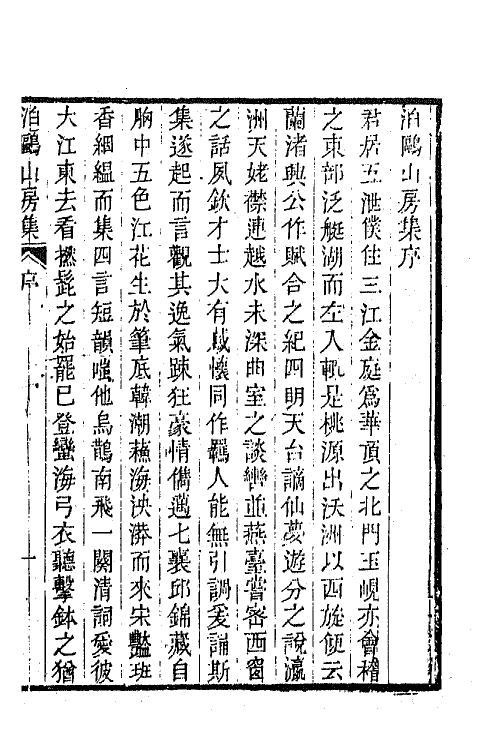 泊鷗山房集序
君居五泄僕住三江金庭爲華頂之北門玉峴亦會稽
之東部泛艇湖而左入軏是桃源出沃洲以西旋便云
蘭渚興公作賦合之紀四明天台謫仙夢遊分之說瀛
洲天姥襟連越水未深曲室之談轡並燕臺嘗密西窗
之話夙欽才士大有感懷同作羈人能無引調爰誦斯
集遂起而言觀其逸氣疎狂豪情儁邁七襄邱錦藏自
胸中五色江花生於筆底韓潮蘓海泱漭而來宋豔班
香絪緼而集四言短韻嗤他烏鵲南飛一闋清詞愛彼
大江東去看撚髭之始罷已登蠻海弓衣聽擊鉢之猶
泊鷗山房集 序 一